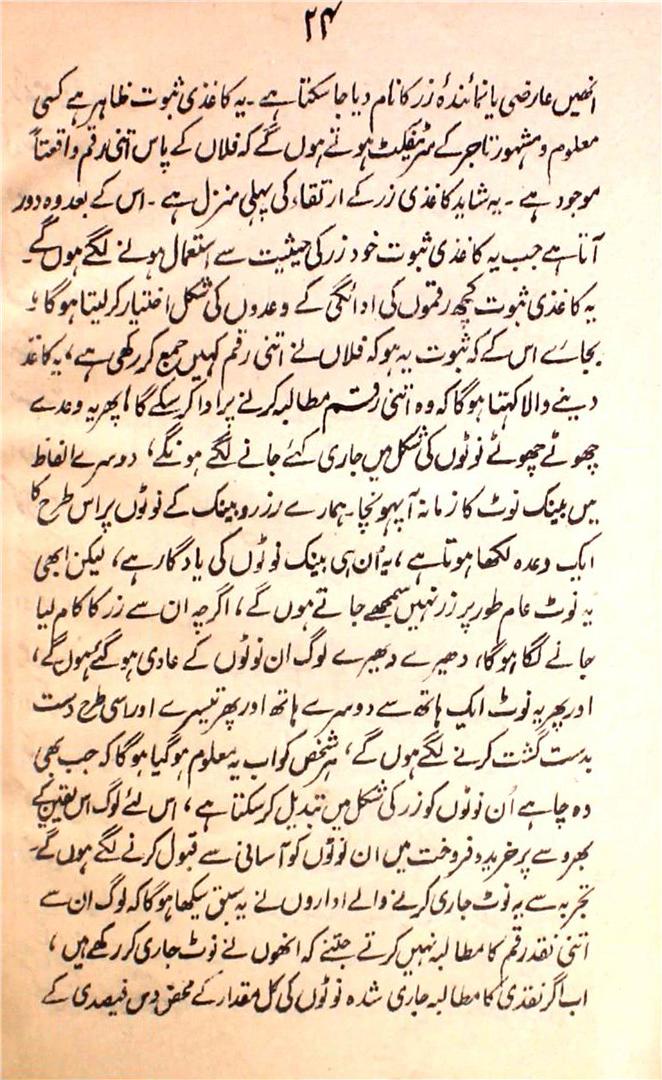 ۲۴
انھیں عارضی یا نمائندۂ زر کا نام دیا جا سکتا ہے۔ یہ کاغذی ثبوت ظاہر ہے کسی
معلوم و مشہور تاجر کے سرٹیفکٹ ہوتے ہوں گے کہ فلاں کے پاس اتنی رقم واقعتاً
موجود ہے۔ یہ شاید کاغذی زر کے ارتقاء کی پہلی منزل ہے۔ اس کے بعد وہ دور
آتا ہے جب یہ کاغذی ثبوت خود زر کی حیثیت سے استعمال ہونے لگے ہوں گے۔
یہ کاغذی ثبوت کچھ رقموں کی ادائگی کے وعدوں کی شکل اختیار کر لیتا ہوگا۔
بجائے اس کے کہ ثبوت یہ ہو کہ فلاں نے اتنی رقم کہیں جمع کر رکھی ہے، یہ کاغذ
دینے والا کہتا ہوگا کہ وہ اتنی رقم مطالبہ کرنے پر ادا کر سکے گا! پھر یہ وعدے
چھوٹے چھوٹے نوٹوں کی شکل میں جاری کئے جانے لگے ہونگے، دوسرے الفاظ
میں بینک نوٹ کا زمانہ آپہونچا۔ ہمارے رزرو بینک کے نوٹوں پر اس طرح کا
ایک وعدہ لکھا ہوتا ہے، یہ اُن ہی بینک نوٹوں کی یادگار ہے، لیکن ابھی
یہ نوٹ عام طور پر زر نہیں سمجھے جاتے ہوں گے، اگرچہ ان سے زر کا کام لیا
جانے لگا ہوگا، دھیرے دھیرے لوگ ان نوٹوں کے عادی ہو گئے ہوں گے،
اور پھر یہ نوٹ ایک ہاتھ سے دوسرے ہاتھ اور پھر تیسرے اور اسی طرح دست
بدست گشت کرنے لگے ہوں گے، ہر شخص کو اب یہ معلوم ہو گیا ہوگا کہ جب بھی
وہ چاہے اُن نوٹوں کو زر کی شکل میں تبدیل کر سکتا ہے، اس لئے لوگ اس یقین کے
بھروسے پر خرید و فروخت میں ان نوٹوں کو آسانی سے قبول کرنے لگے ہوں گے۔
تجربہ سے یہ نوٹ جاری کرنے والے اداروں نے یہ سبق سیکھا ہوگا کہ لوگ ان سے
اتنی نقد رقم کا مطالبہ نہیں کرتے جتنے کہ انھوں نے نوٹ جاری کر رکھے ہیں،
اب اگر نقدی کا مطالبہ جاری شدہ نوٹوں کی کل مقدار کے محض دس فیصدی کے